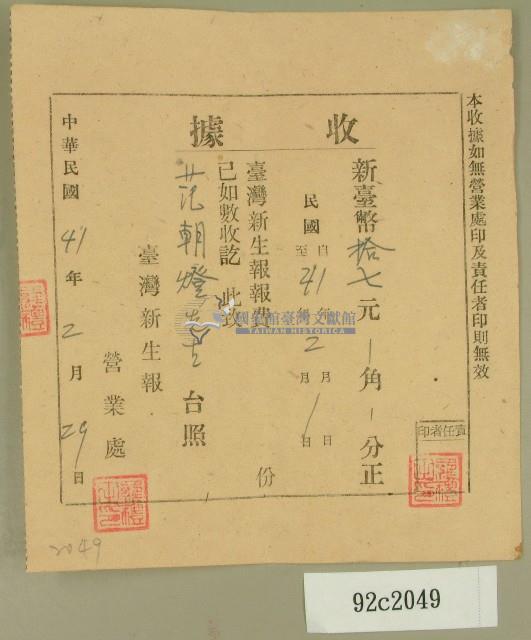 本收據如無營業處印及責任者印則無效
責任者印
收據
新臺幣拾七元 角 分正
民國 自 41年2月1日
至 年 月 日
臺灣新生報報費 份
已如數收訖 此致
范朝燈先生 台照
臺灣新生報
營業處
中華民國41年2月29日
2049
國史館臺灣文獻館
TAIWAN HISTORICA
92c2049